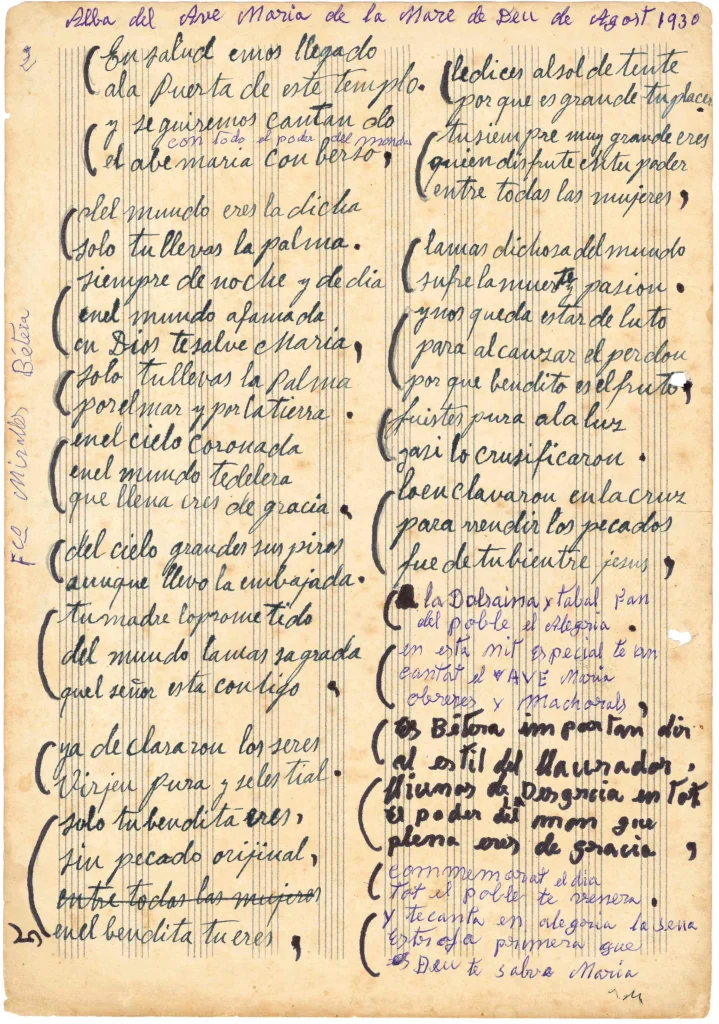 Alba del Ave Maria de la Mare de Deu de Agost 1930
En salud emos llegado
ala Puerta de este templo.
y seguiremos cantando
con todo el poder del mondo
el abe maria con berso,
del mundo eres la dicha
solo tu llevas la palma.
siempre de noche y de dia
enel mundo afamada
en Dios te salve Maria,
solo tu llevas la Palma
por el mar y por la tierra.
enel cielo coronada
enel mundo
que llena eres de gracia.
del cielo grandes suspiros
aunque llevo la embajada.
tu madre
del mundo la mas sagrada
quel señor esta contigo,
ya declararon los seres
Virjen pura y selestial.
solo tu bendita eres,
sin pecado orijinal,
entre todas las mujeres
enel bendita tu eres,
5
le dices al sol de tente
por que es grande tu placer
tu siempre muy grande eres
quien disfrute en tu poder
entre todas las mujeres,
la mas dichosa del mundo
sufre la muerte y pasion.
y nos queda estar de luto
para alcanzar el perdon
por que bendito es el fruto,
fuistes pura a la luz
y asi lo crusificaron.
lo en clavaron en la cruz
para rrendir los pecados
fue de tu bientre jesus,
a la Dolsaina y tabal fan
del poble el Alegria.
en esta nit especial te an
cantat el AVE Maria
obreres y Machorals,
es Bétera importan dir
al estil del llaurador.
lliumos de Desgracia en tot
es poder del mon que
plena eres de gracia,
commemorat el dia
tot el poble te venera.
y te canta en alegria la sena
Estrofa primera que
Deu te salve Maria
Fco Miralles Bétera